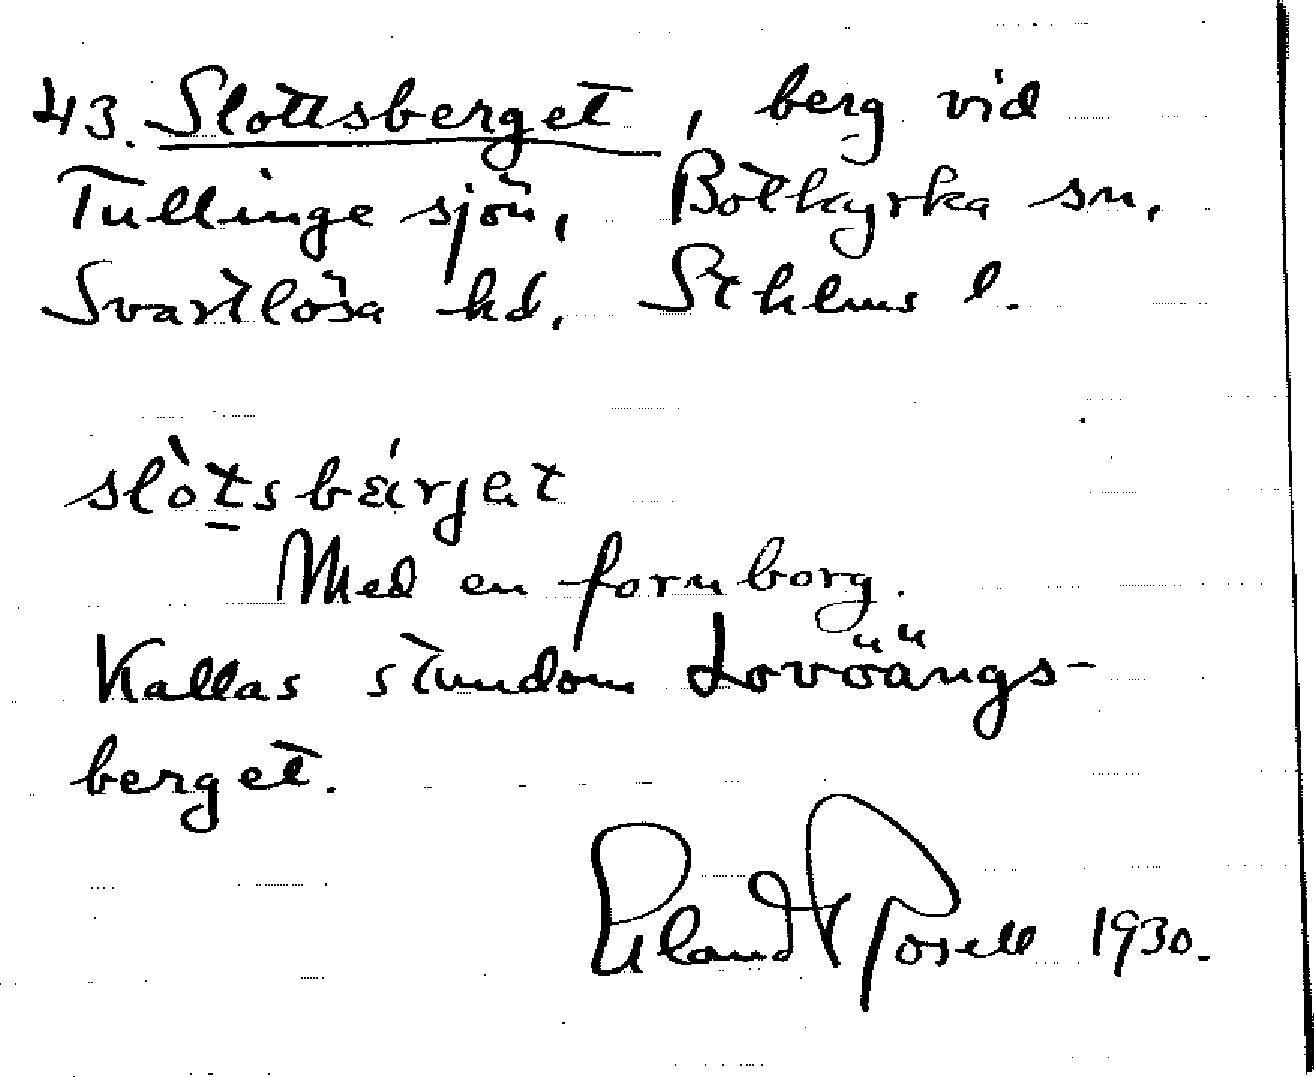 43. Slottsberget, berg vid
Tullinge sjön, Botkyrka sn,
Svartlösa hd, Sthlms l.
slòt̲sbä́rjet
Med en fornborg.
Kallas stundom Lovöängs-
berget.
Erland Rosell 1930.